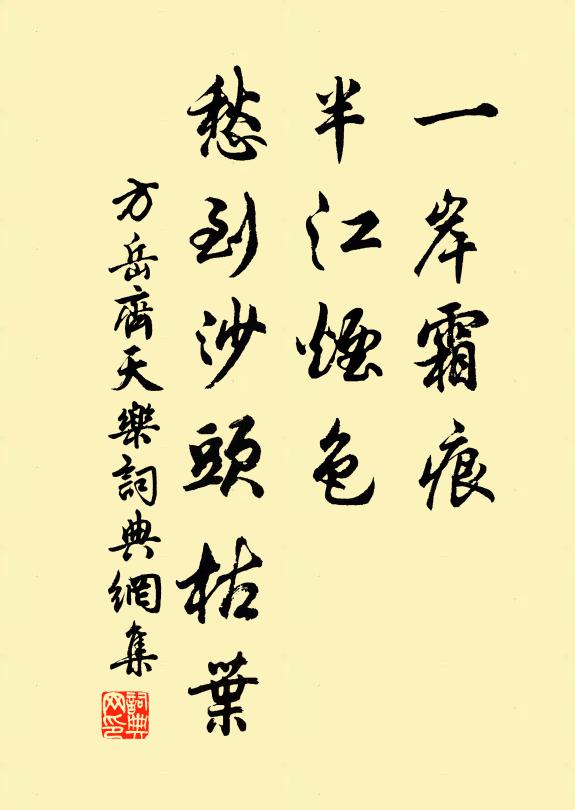 一岸霜痕
半江煙色
愁到沙頭枯葉
方岳齊天樂詞典網集
詞典网印